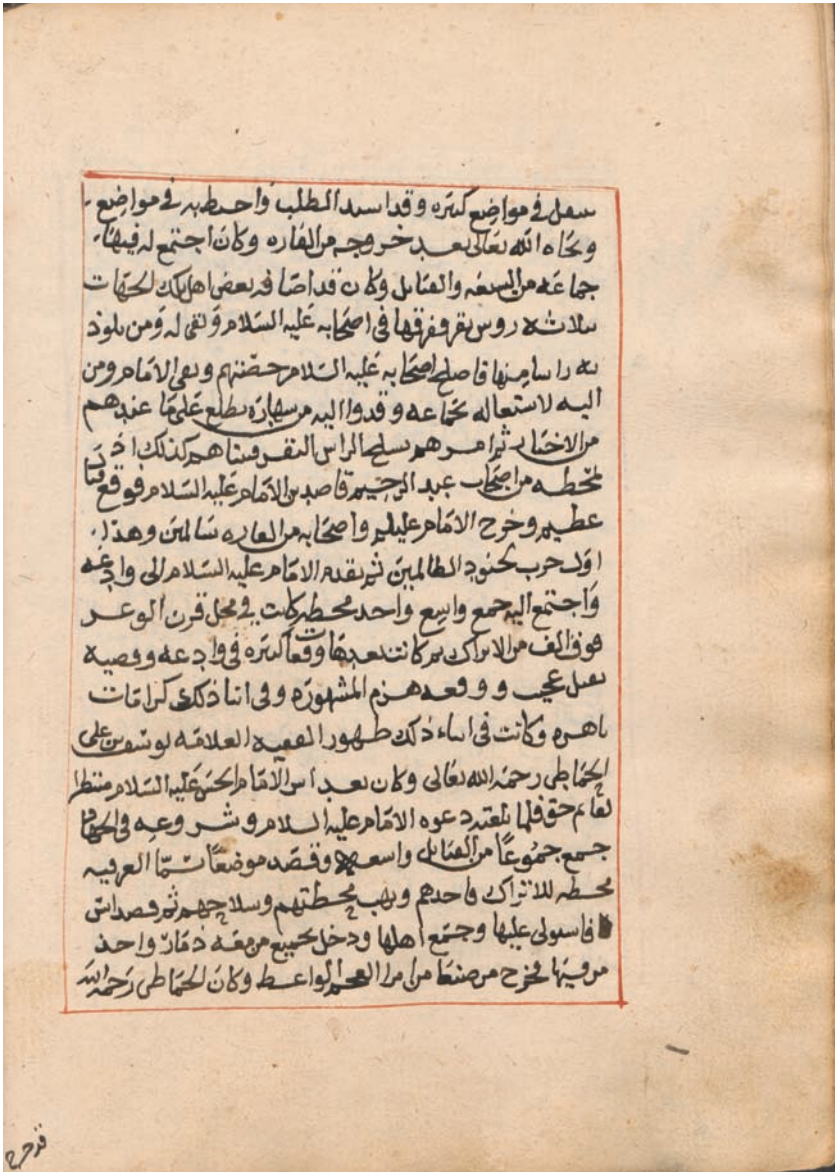 سعل في مواضع كثيره وقد اسد الطلب واحيط به في مواضع
ونجاه الله تعالى بعد خروجه من القاره وكان اجتمع له فيها
جماعه من السعه والقبايل وكان قد اضافه بعض اهل تلك الجهات
بثلاثه روس بقر وفرقها في اصحابه عليه السلام وبقي له ومن يلوذ
به راسا منها فاصلح اصحابه عليه السلام حصتهم وبقي الامام ومن
اليه لاستعاله بجماعه وفدوا اليه من سهاره يطلع على ما عندهم
من الاخبار ثم امرهم بسلح الراس البقر فبيناهم كذلك اذ
بمحطه من اصحاب عبد الرحيم قاصدين الامام عليه السلام فوقع قتال
عظيم وخرج الامام عليلم واصحابه من القاره سالمين وهذا
اول حرب بجنود الظالمين ثم تقدم الامام عليه السلام الى وادعه
واجتمع اليه جمع واسع واخذ محطه كانت في محل قرن الوعر
فوق الف من الاتراك ثم كانت بعدها وقعات كثيره في وادعه وقضيه
نعل عجيب ووقعه هزم المشهوره وفي اثنا ذلك كرامات
باهره وكانت في اثناء ذلك ظهور الفقيه العلامه يوسف بن علي
الحماطي رحمه الله تعالى وكان بعد اسر الامام الحسن عليه السلام منتظرا
لقايم حق فلما بلغته دعوه الامام عليه السلام وشروعه في الجهاد
جمع جموعا من القبايل واسعه وقصد موضعا تسما العرفيه
محطه للاتراك فاخذهم ونهب محطتهم وسلاحهم ثم قصد انس
فاستولى عليها وجمع اهلها ودخل بجميع من معه ذمار واخذ
من فيها فخرج من صنعا من امرا العجم الواعظ وكان الحماطي رحمه الله
فدخرج